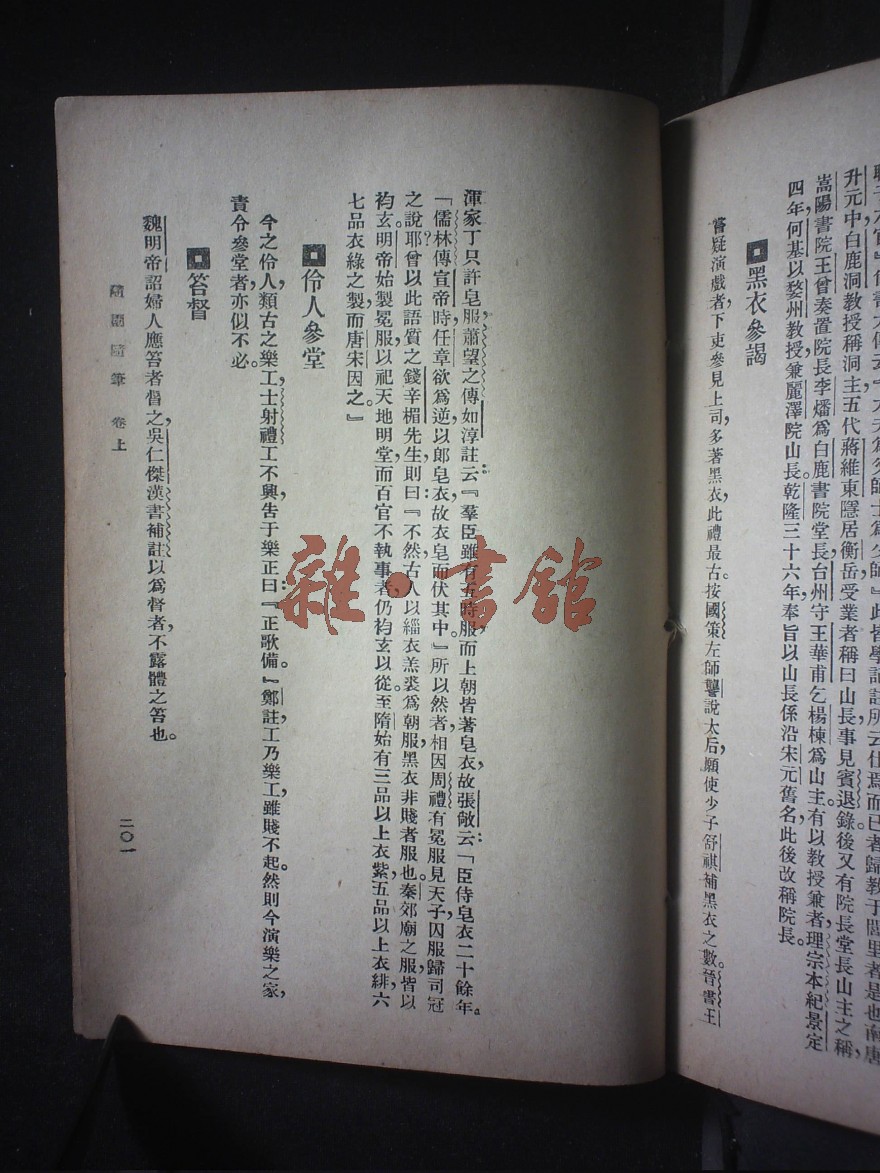 升元中白鹿洞教授稱洞主五代蔣維東隱居衡岳受業者稱曰山長事見賓退錄後又有院長堂長山主之稱,
嵩陽書院王曾奏置院長李燔爲白鹿書院堂長台州守王華甫乞楊棟爲山主有以教授兼者理宗本紀景定
四年何基以婺州教授兼麗澤院山長乾隆三十六年奉旨以山長係沿宋元舊名此後改稱院長。
黑衣參謁
嘗疑演戲者下吏參見上司多著黑衣此禮最古按國策左師讋說太后願使少子舒祺補黑衣之數晉書王
渾家丁只許皂服蕭望之傳如淳註云『羣臣雖有五時服而上朝皆著皂衣故張敞云「臣侍皂衣二十餘年。
「儒林傳宣帝時任章欲爲逆以郎皂衣故衣皂而伏其中。』所以然者相因周禮有冕服見天子囚服歸司寇
之說耶?曾以此語質之錢辛楣先生則曰:『不然古人以緇衣羔裘爲朝服黑衣非賤者服也秦郊廟之服皆以
袀玄明帝始製冕服以祀天地明堂而百官不執事者仍袀玄以從至隋始有三品以上衣紫五品以上衣緋六
七品衣綠之製而唐宋因之』
伶人參堂
今之伶人類古之樂工士射禮工不興告于樂正曰:『正歌備。』鄭註工乃樂工雖賤不起。然則今演樂之家,
責令參堂者亦似不必。
笞督
魏明帝詔婦人應笞者督之吳仁傑漢書補註以爲督者不露體之笞也。
隨園隨筆 卷上
二〇一
雜·書館